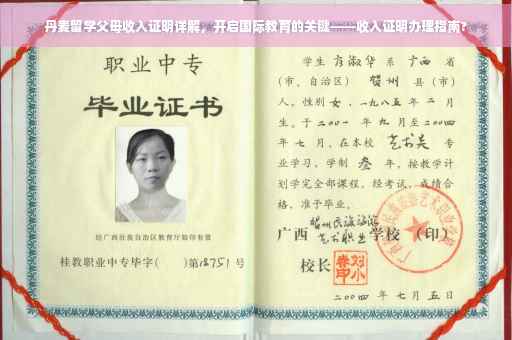 丹麦留学父母收入证明详解，开启国际教育的关键——收入证明办理指南？
职业中专
毕业证书
经广西壮族自治区教育厅验印有效
桂教职业中专毕字（ ）第 13751 号
学生 方淑华 系 广西 省
（市、自治区） 贺州 县（市）
人，性别 女，一九八五年 二 月
生。于 二〇〇一 年 九 月至 二〇〇四
年 七 月，在本校 艺术类 专
业学习，学制 叁 年，按教学计
划学完全部课程，经考试，成绩合
格，准予毕业。
广西 贺州民族旅游艺术职业 学校（印）
校长
二〇〇四 年 七 月 五 日